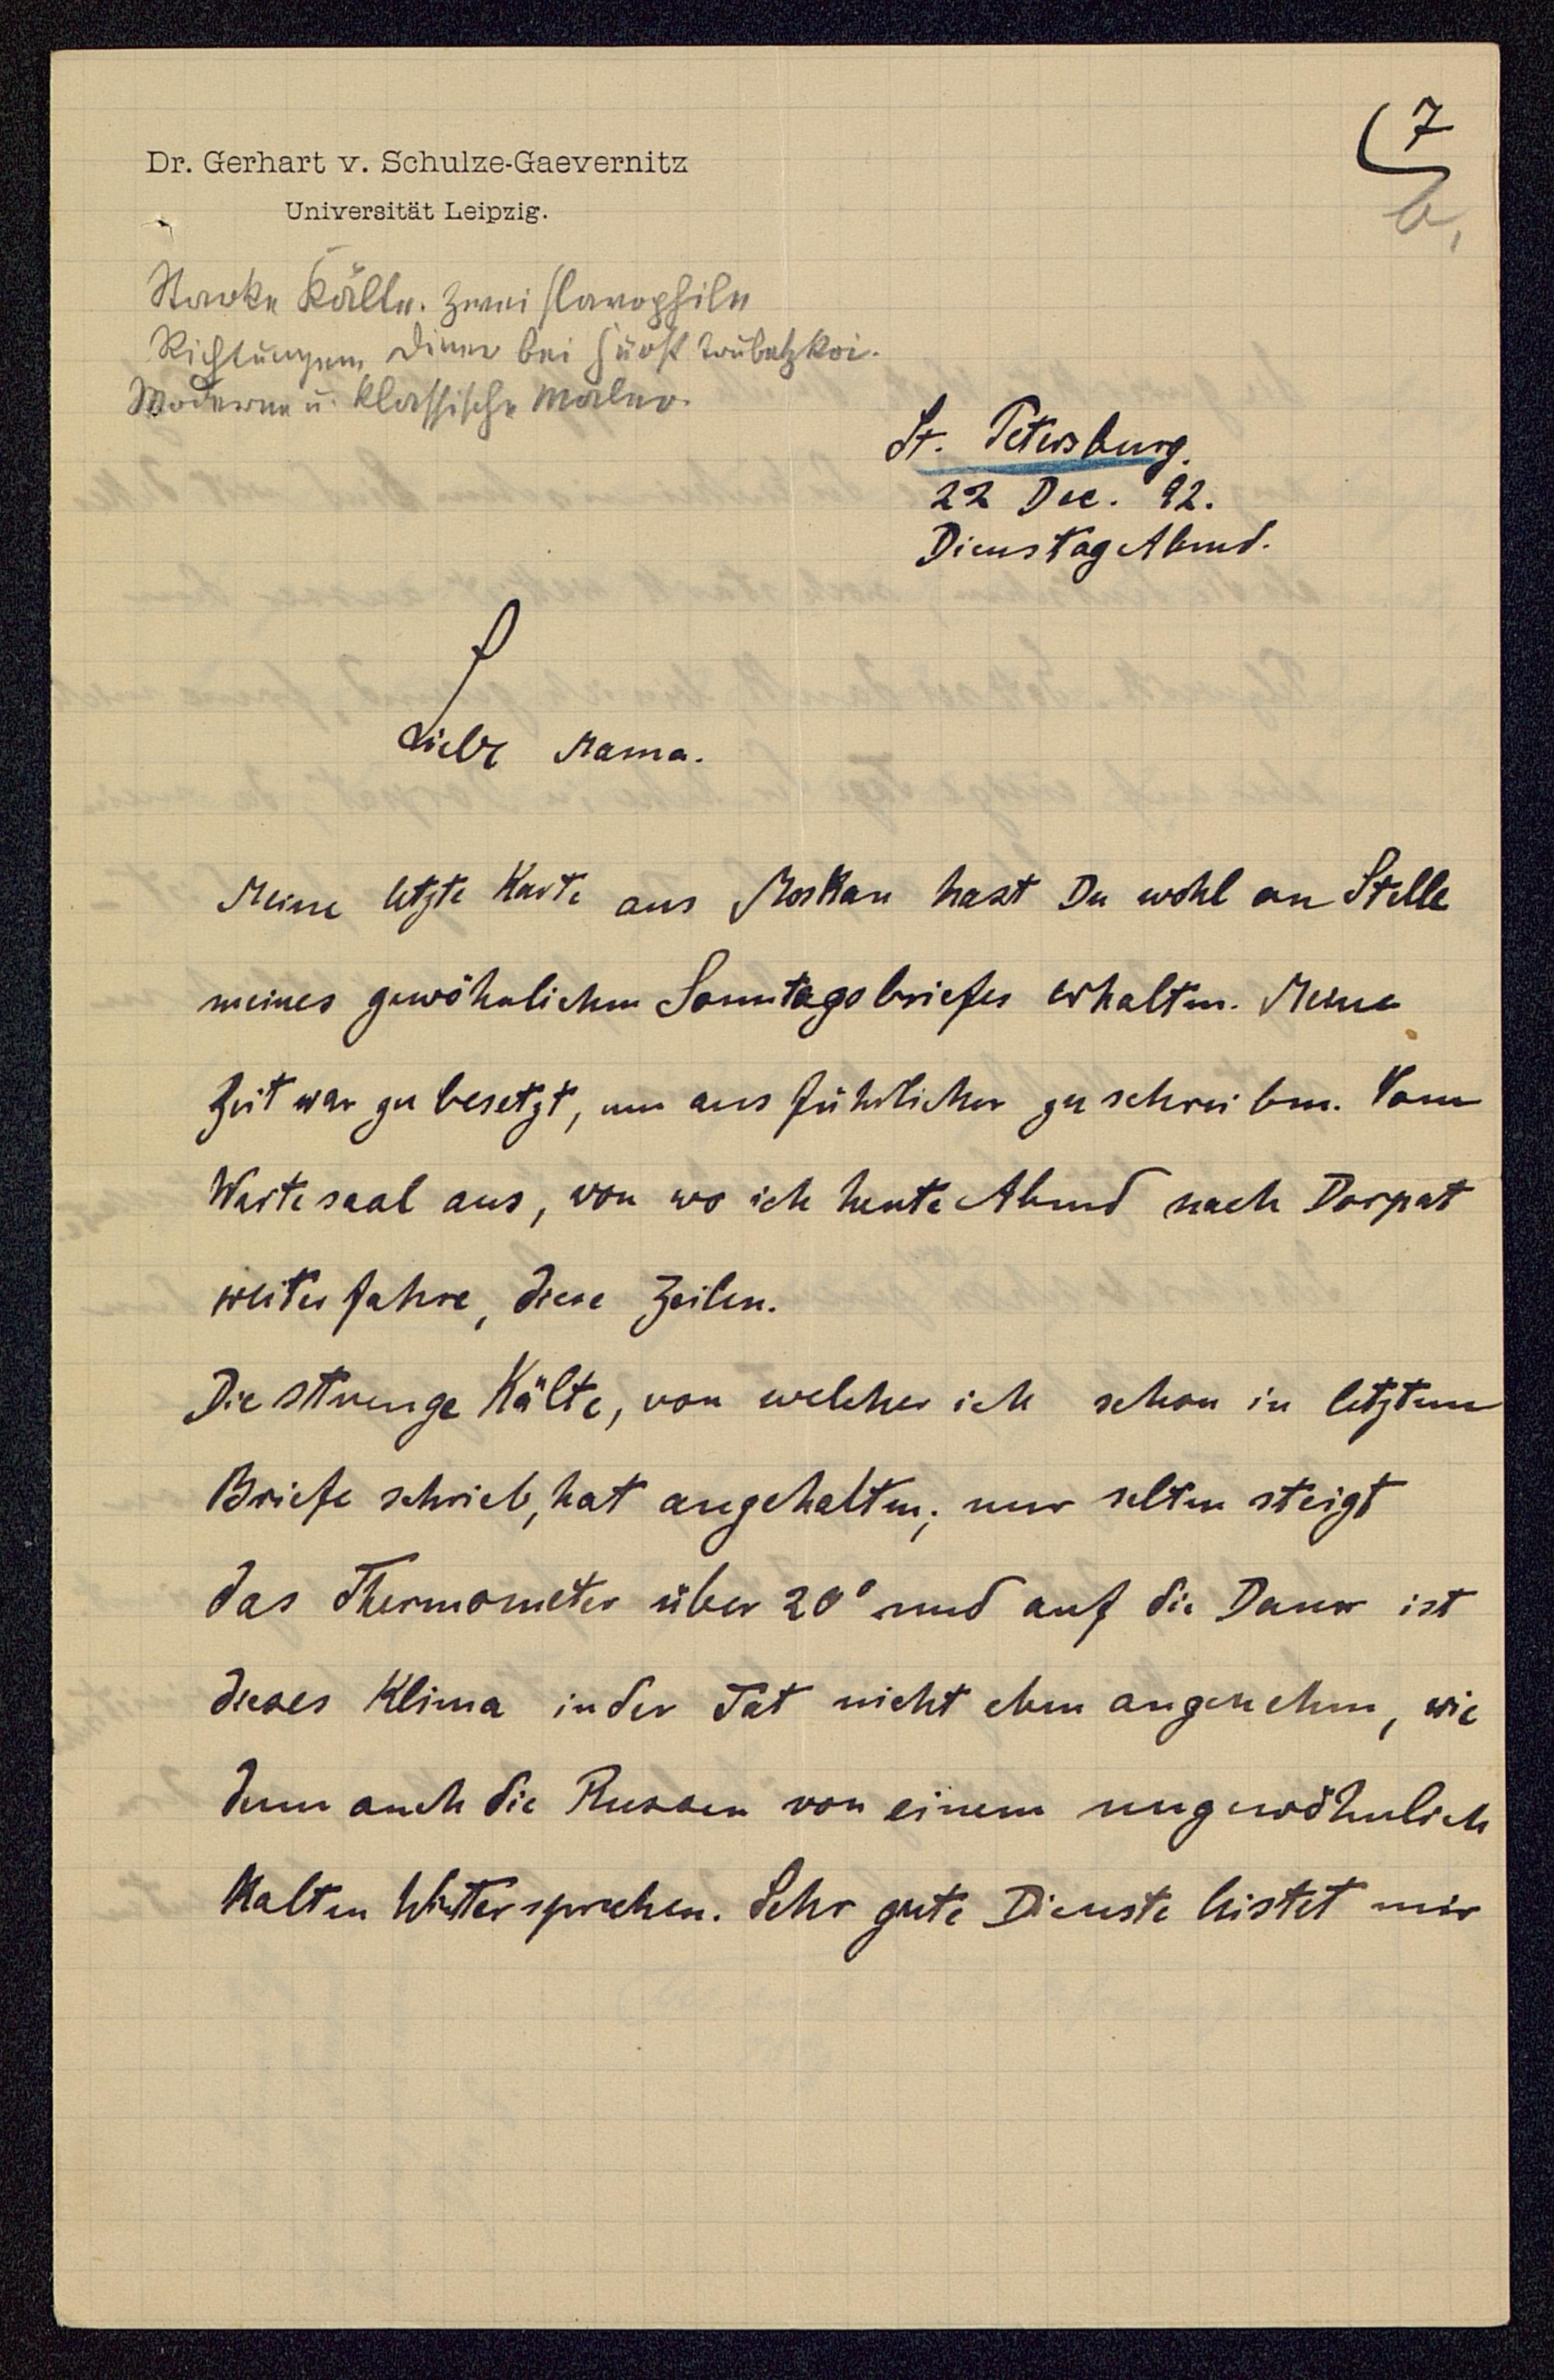 7
b,
Dr. Gerhart v. Schulze-Gaevernitz
Universität Leipzig.
Starke Kälte. Zwei slavophile
Richtungen, Diner bei Fürst Trubetzkoi.
Moderne u. klassische Maler.
St. Petersburg.
22 Dec. 92.
Dienstag Abend.
Liebe Mama.
Meine letzte Karte aus Moskau hast Du wohl an Stelle
meines gewöhnlichen Sonntagsbriefes erhalten. Meine
Zeit war zu besetzt, um ausführlicher zu schreiben. Vom
Wartesaal aus, von wo ich heute Abend nach Dorpat
weiterfahre, diese Zeilen.
Die strenge Kälte, von welcher ich schon in letztem
Briefe schrieb, hat angehalten; nur selten steigt
das Thermometer über 20° und auf die Dauer ist
dieses Klima in der Tat nicht eben angenehm, wie
denn auch die Russen von einem ungewöhnlich
kalten Winter sprechen. Sehr gute Dienste leistet mir